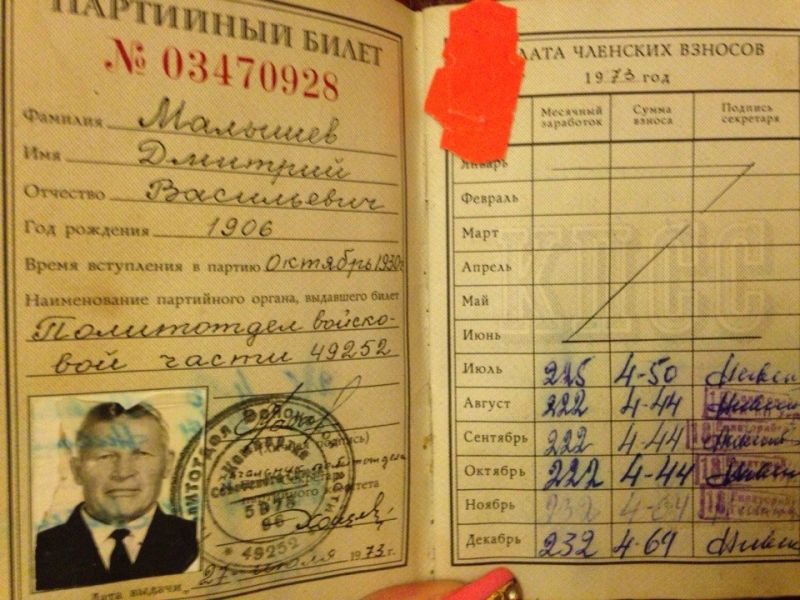 ПАРТИЙНЫЙ БИЛЕТ
№ 03470928
Фамилия Малышев
Имя Дмитрий
Отчество Васильевич
Год рождения 1906
Время вступления в партию Октябрь 1930г
Наименование партийного органа, выдавшего билет
Политотдел войско-
вой части 49252
49252
Дата выдачи 27 июля 1973 г.
ДАТА ЧЛЕНСКИХ ВЗНОСОВ
1973 год
Месячный заработок Сумма взноса Подпись секретаря
Январь
Февраль
Март
Апрель
Май
Июнь
КПСС
Июль 225 4-50
Август 222 4-44
Сентябрь 222 4-44
Октябрь 222 4-44
Ноябрь 232 4-64
Декабрь 232 4-64